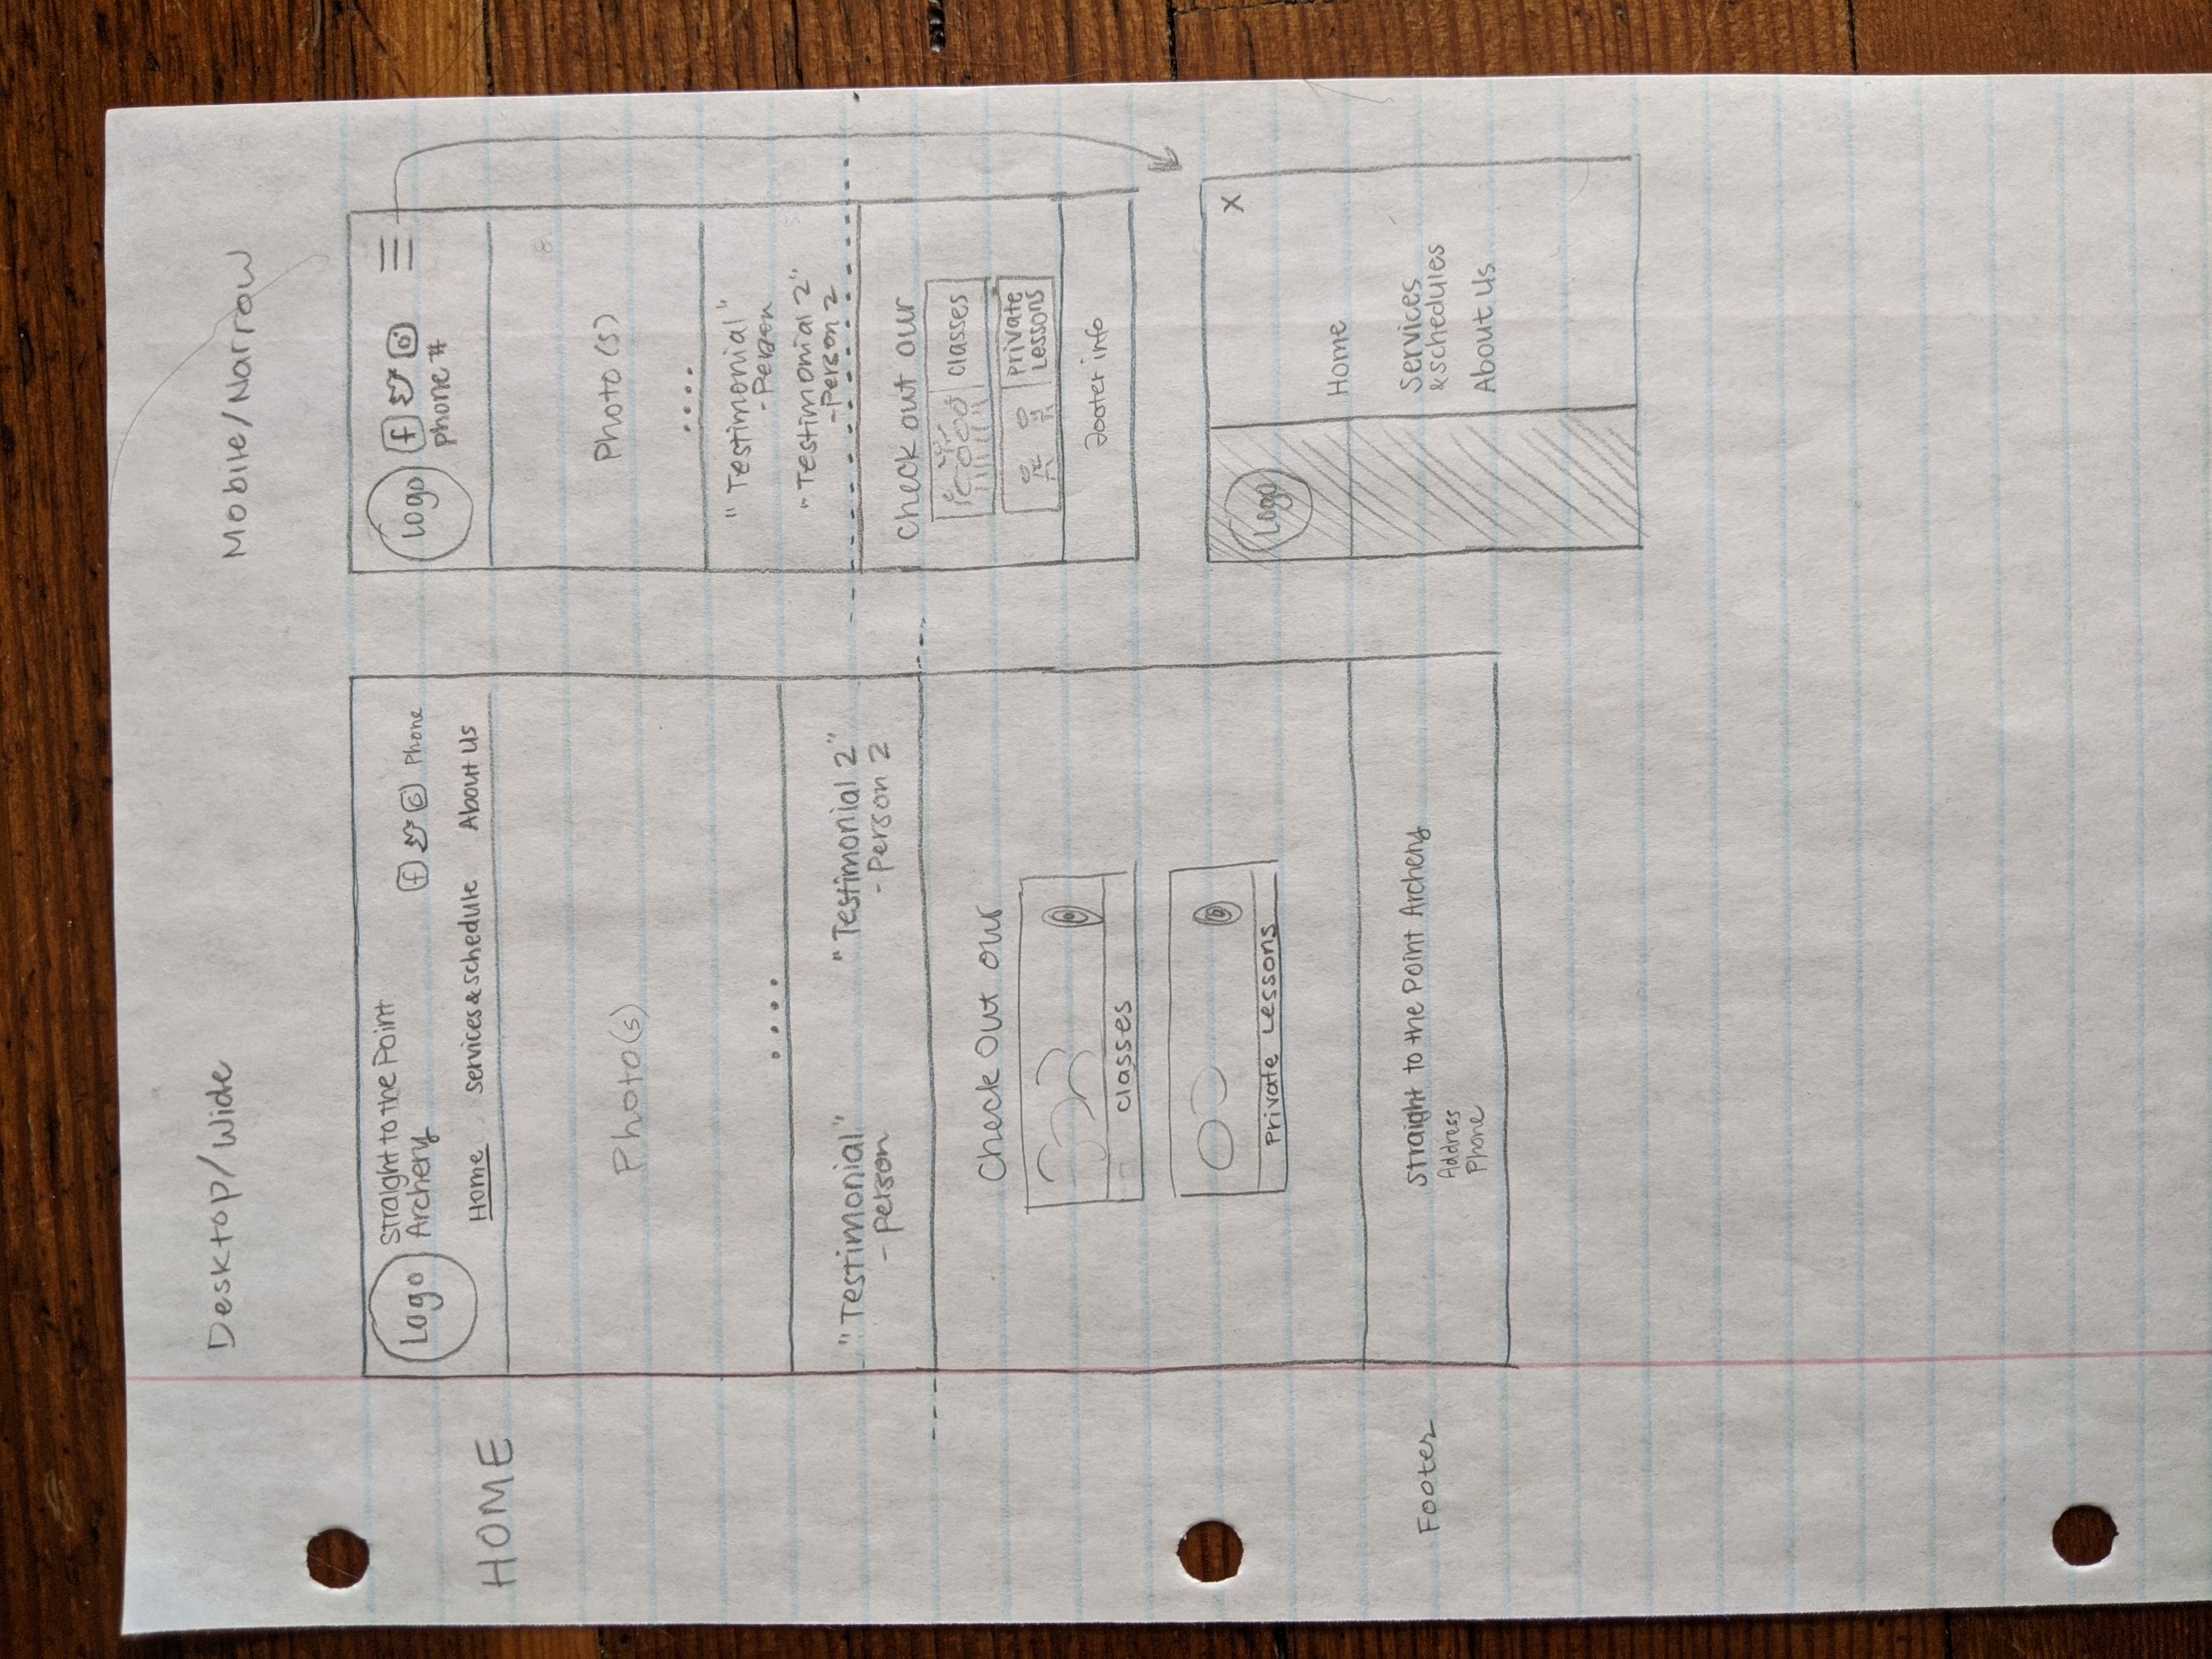 Desktop/Wide
Mobile/Narrow
HOME
Logo
Straight to the Point
Archery
f
Phone
Home
Services & Schedule
About Us
Photo(s)
"Testimonial"
- person
"Testimonial 2"
- Person 2
Check Out our
Classes
Private Lessons
Footer
Straight to the Point Archery
Address
Phone
Logo
f
phone #
Photo (s)
"Testimonial"
- Person
"Testimonial 2"
- Person 2
Check out our
Classes
Private
Lessons
Footer info
Logo
X
Home
Services
& schedules
About Us